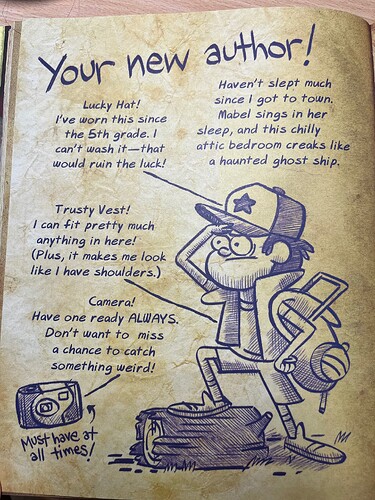 Your new author!
Lucky Hat!
I've worn this since
the 5th grade. I
can't wash it—that
would ruin the luck!
Haven't slept much
since I got to town.
Mabel sings in her
sleep, and this chilly
attic bedroom creaks like
a haunted ghost ship.
Trusty Vest!
I can fit pretty much
anything in here!
(Plus, it makes me look
like I have shoulders.)
Camera!
Have one ready ALWAYS.
Don't want to miss
a chance to catch
something weird!
Must have at
all times!